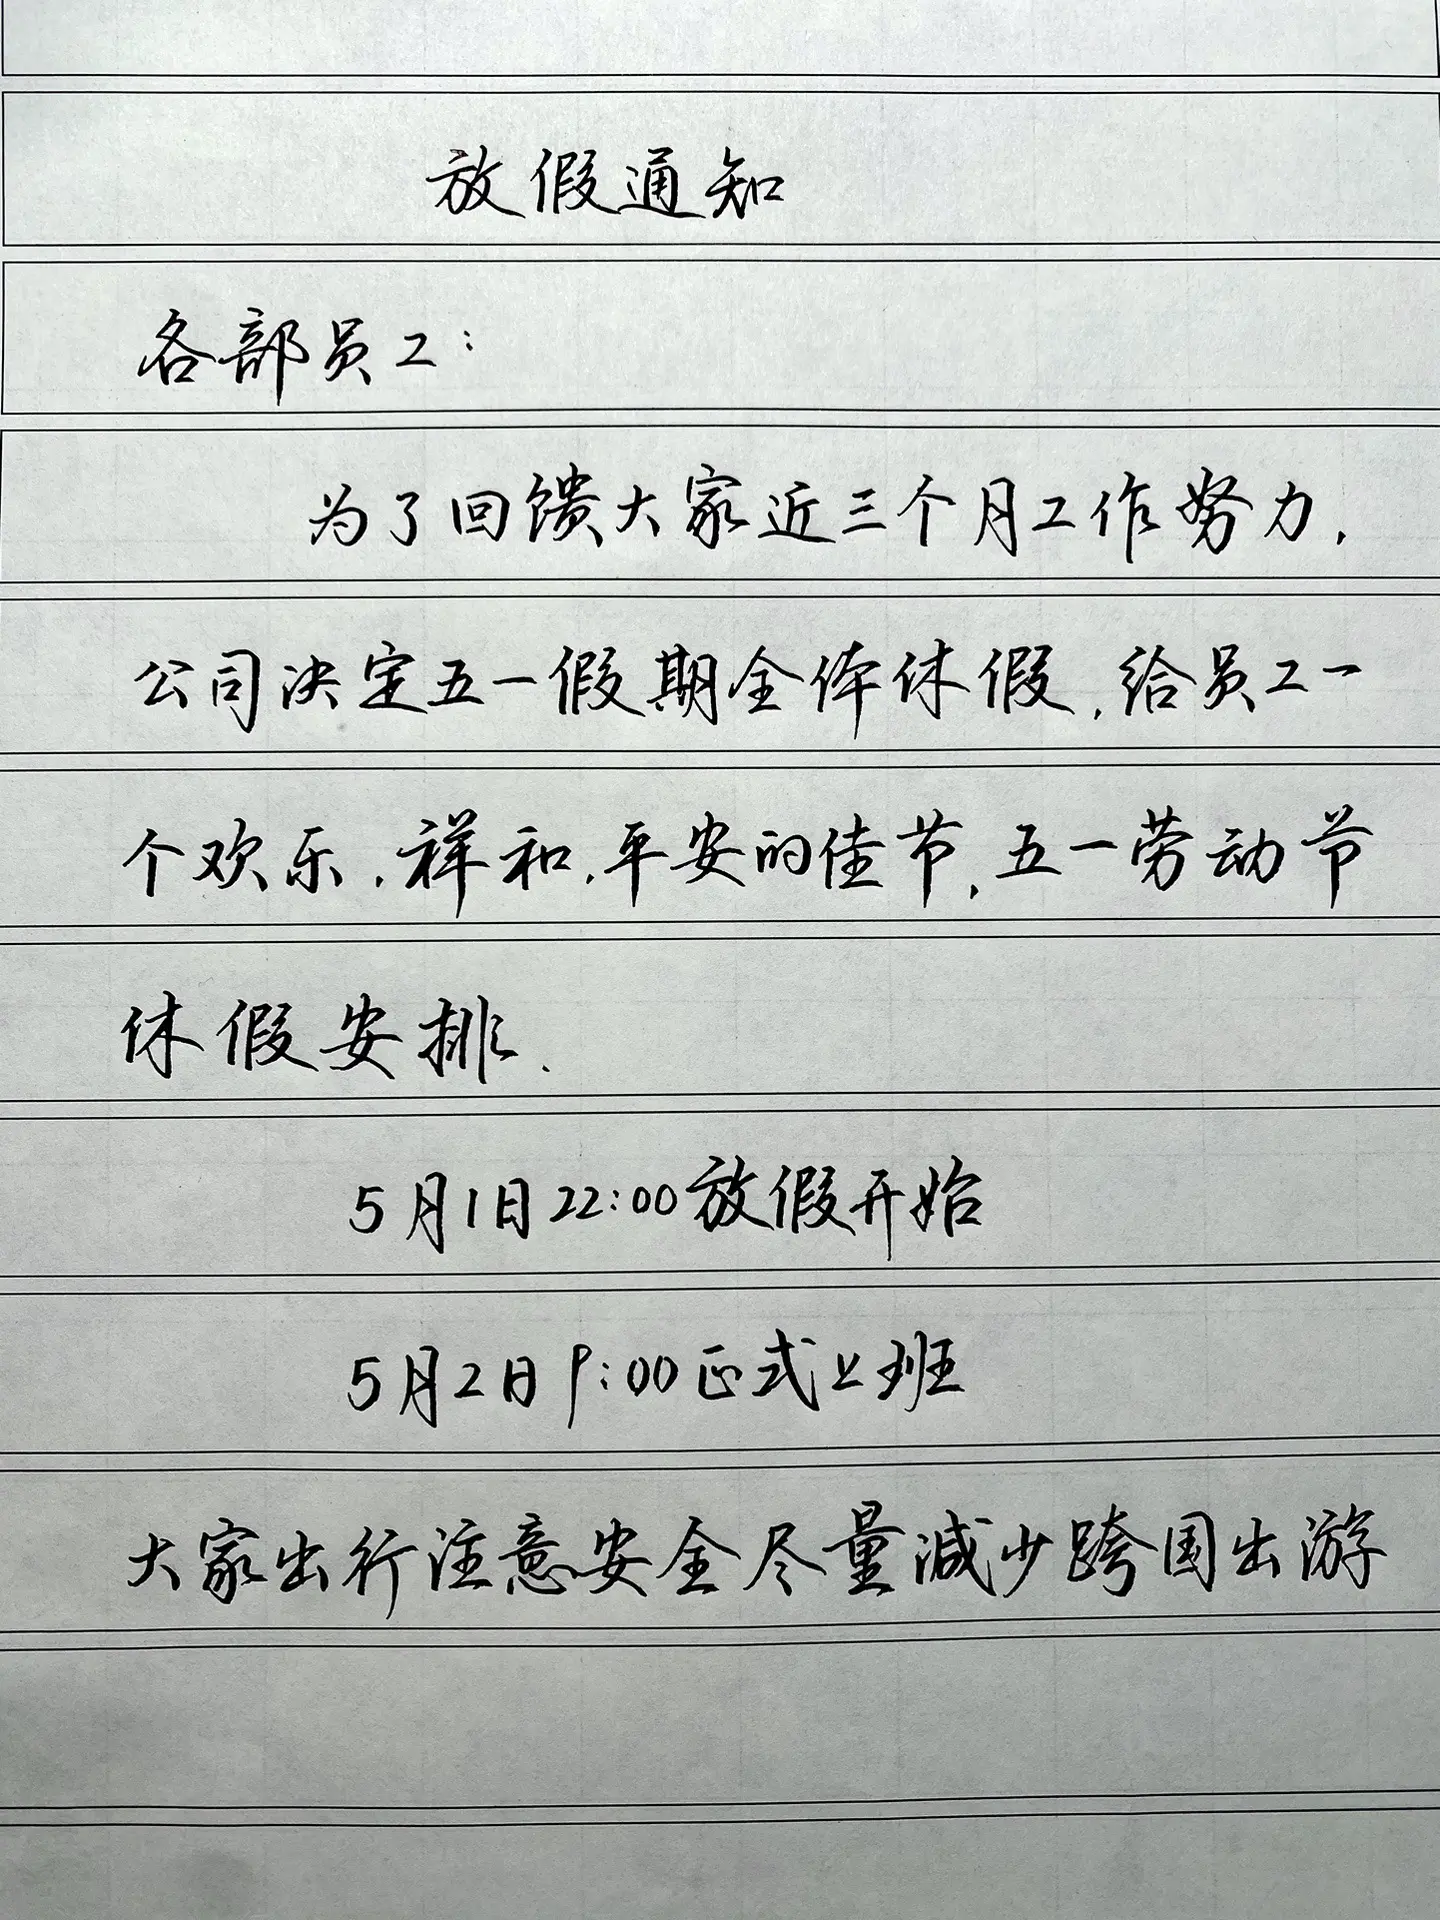 放假通知
各部员工：
为了回馈大家近三个月工作努力，
公司决定五一假期全体休假，给员工一
个欢乐、祥和、平安的佳节，五一劳动节
休假安排、
5月1日22:00放假开始
5月2日9:00正式上班
大家出行注意安全尽量减少跨国出游